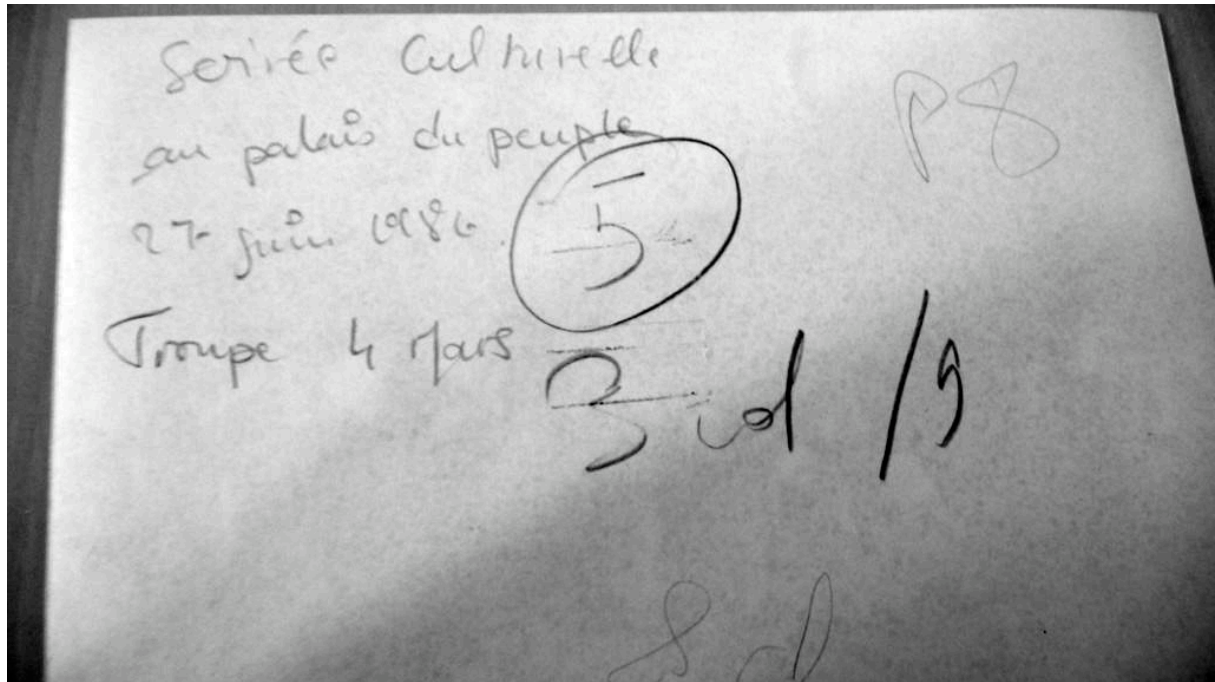 Soirée Culturelle
P8
au palais du peuple
27 juin 1986.
5
Troupe 4 Mars
3 col /5